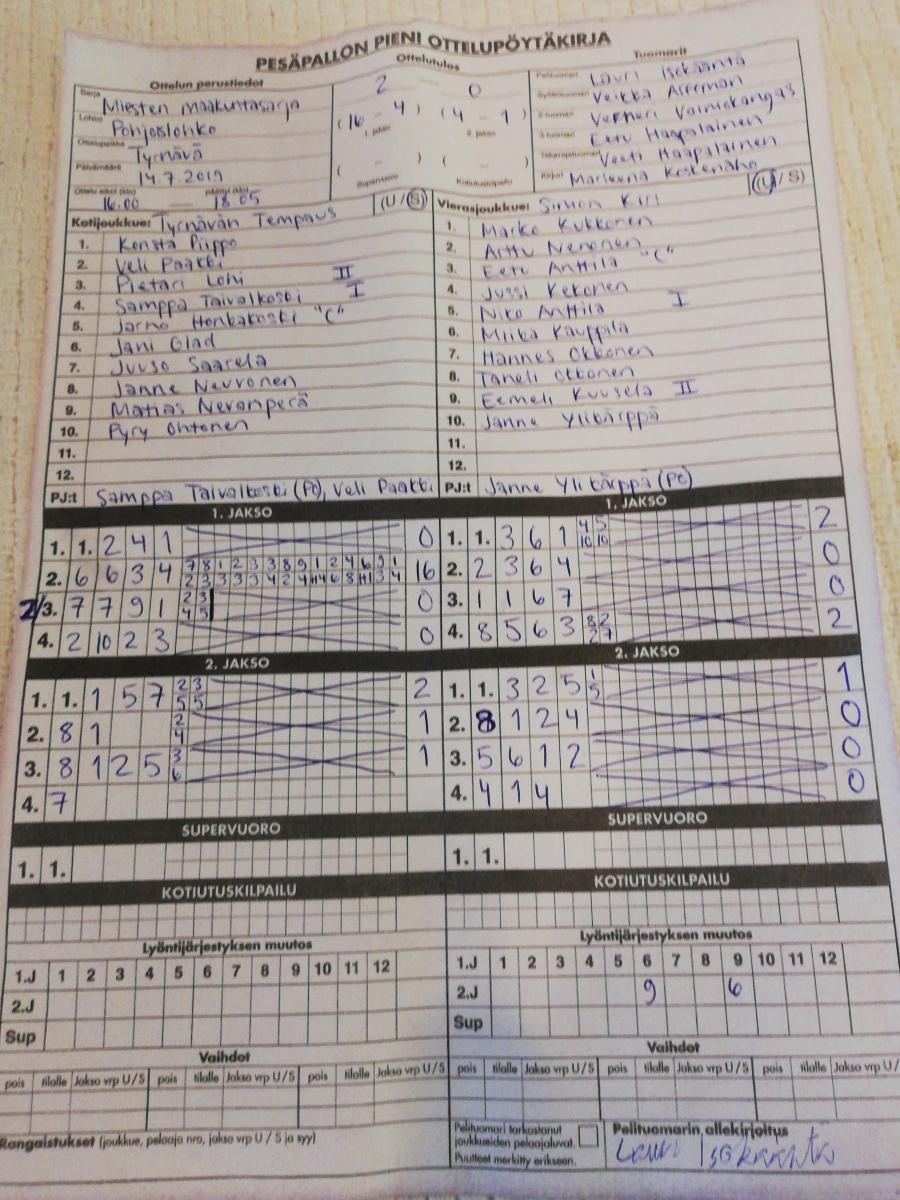 PESÄPALLON PIENI OTTELUPÖYTÄKIRJA
Ottelun perustiedot
Sarja Miesten maakuntasarja
Lohko Pohjoislohko
Ottelupaikka Tyrnävä
Päivämäärä 14.7.2019
Ottelu alkoi (klo) 16.00 — päättyi (klo) 18.05
Ottelutulos
2 0
(16 - 4) (4 - 1)
1. jakso 2. jakso
( - ) ( - )
Supervuoro Kotiutuskilpailu
Tuomarit
Pelituomari Lauri Isokääntä
Syöttötuomari Veikka
2-tuomari Verneri Vainiokangas
3-tuomari Eetu Haapalainen
Takarajatuomari Veeti Haapalainen
Kirjuri Marleena Koskenaho
Kotijoukkue: Tyrnävän Tempaus (U / S)
1. Konsta Piippo
2. Veli Paakki
3. Pietari Lohi II
4. Samppa Taivalkoski I
5. Jarno Honkakoski "C"
6. Jani Glad
7. Juuso Saarela
8. Janne Nevronen
9. Matias Nevanperä
10. Pyry Ohtonen
11.
12.
PJ:t Samppa Taivalkoski (PO), Veli Paakki
Vierasjoukkue: Simon Kiri (U / S)
1. Marko Kukkonen
2. Arttu Nenonen
3. Eetu Anttila "C"
4. Jussi Kekonen
5. Niko Anttila I
6. Miika Kauppila
7. Hannes Okkonen
8. Taneli Okkonen
9. Eemeli Kuusela II
10. Janne Ylikärppä
11.
12.
PJ:t Janne Ylikärppä (PO)
1. JAKSO
1. 1. 2 4 1 0
2. 6 6 3 4 7 8 1 2 3 3 8 9 1 2 4 6 9 1 16
2/3. 7 7 9 1 2 3 0
4 5
4. 2 10 2 3 0
1. JAKSO
1. 1. 3 6 1 4 5 2
10 10
2. 2 3 6 4 0
3. 1 1 6 7 0
4. 8 5 6 3 8 2 2
2 7
2. JAKSO
1. 1. 1 5 7 2 3 2
5 5
2. 8 1 2 1
4
3. 8 1 2 5 3 1
6
4. 7
2. JAKSO
1. 1. 3 2 5 1 1
5
2. 8 1 2 4 0
3. 5 6 1 2 0
4. 4 1 4 0
SUPERVUORO
1. 1.
SUPERVUORO
1. 1.
KOTIUTUSKILPAILU
KOTIUTUSKILPAILU
Lyöntijärjestyksen muutos
1.J 1 2 3 4 5 6 7 8 9 10 11 12
2.J
Sup
Lyöntijärjestyksen muutos
1.J 1 2 3 4 5 6 7 8 9 10 11 12
2.J 9 6
Sup
Vaihdot
pois tilalle Jakso vrp U/S pois tilalle Jakso vrp U/S pois tilalle Jakso vrp U/S
Vaihdot
pois tilalle Jakso vrp U/S pois tilalle Jakso vrp U/S pois tilalle Jakso vrp U/
Rangaistukset (joukkue, pelaaja nro, jakso vrp U / S ja syy)
Pelituomari tarkastanut
joukkueiden pelaajaluvat.
Puutteet merkitty erikseen.
Pelituomarin allekirjoitus
Lauri Isokääntä